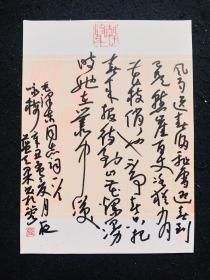 风雨送春归飞雪迎春到
已是悬崖百丈冰犹有
花枝俏俏也不争春只把
春来报待到山花烂漫
时她在丛中笑
毛泽东同志词
咏梅辛丑